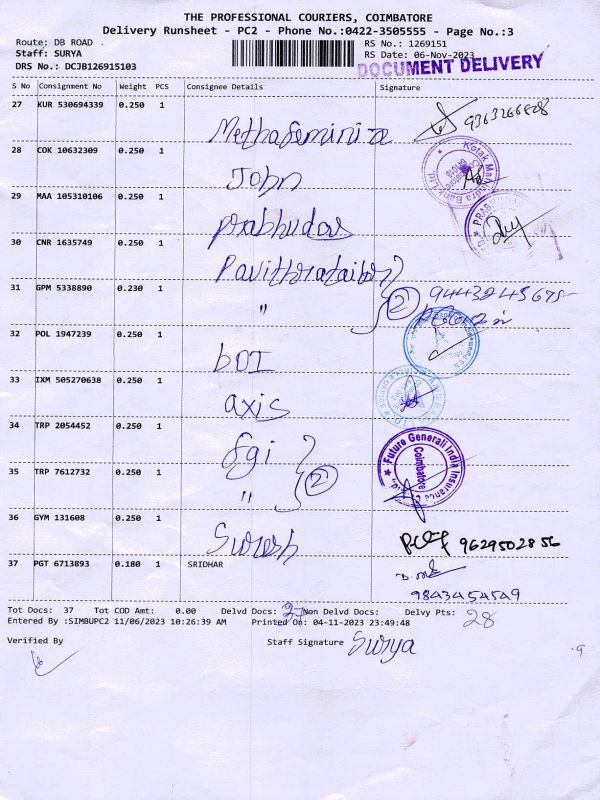 THE PROFESSIONAL COURIERS, COIMBATORE
Delivery Runsheet - PC2 - Phone No.:0422-3505555 - Page No.:3
Route: DB ROAD . RS No.: 1269151
Staff: SURYA RS Date: 06-Nov-2023
DRS No.: DCJB126915103 DOCUMENT DELIVERY
S No Consignment No Weight PCS Consignee Details Signature
27 KUR 530694339 0.250 1
28 COK 10632309 0.250 1 John
Kotak Mahindra Bank Ltd
29 MAA 105310106 0.250 1 prabhudas
30 CNR 1635749 0.250 1
31 GPM 5338890 0.230 1 " 2
32 POL 1947239 0.250 1 bOI
33 IXM 505270638 0.250 1 axis
34 TRP 2054452 0.250 1 fgi
Future Generali India Insurance
Coimbatore
35 TRP 7612732 0.250 1 " 2
36 GYM 131608 0.250 1 Suresh 9629502856
37 PGT 6713893 0.180 1 SRIDHAR
9843454549
Tot Docs: 37 Tot COD Amt: 0.00 Delvd Docs: 37 Non Delvd Docs: Delvy Pts: 28
Entered By :SIMBUPC2 11/06/2023 10:26:39 AM Printed On: 04-11-2023 23:49:48
Verified By Staff Signature Surya